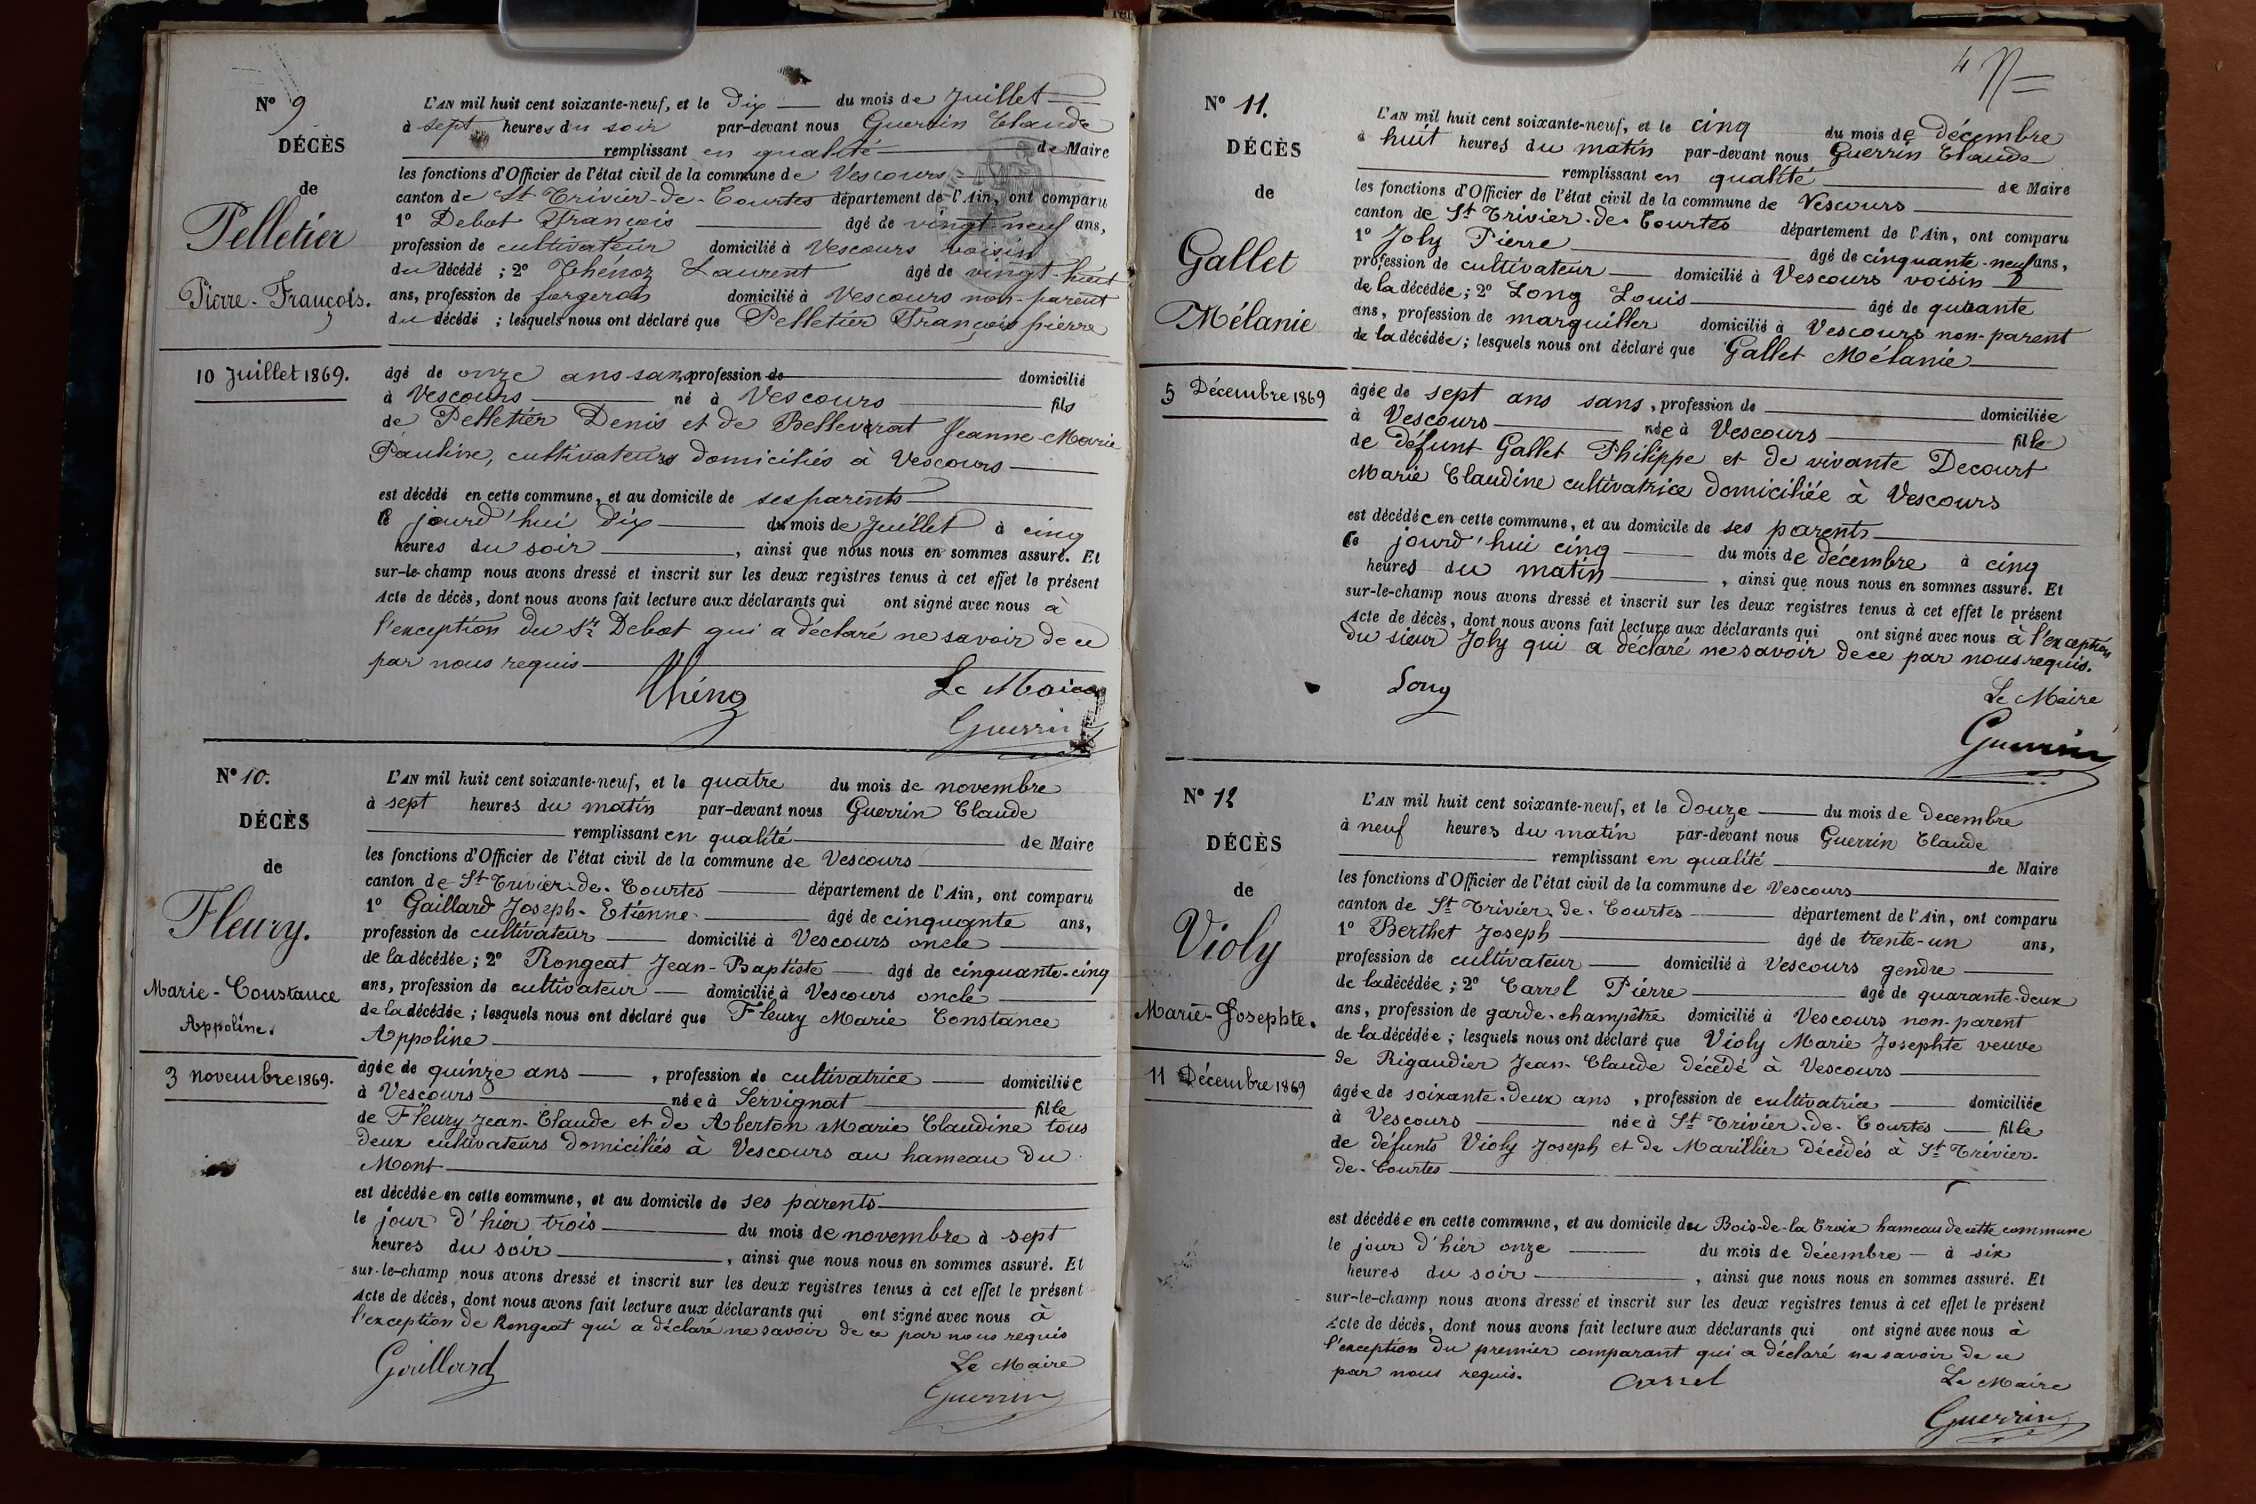 N° 9
DÉCÈS
de
Pelletier
Pierre-François.
10 Juillet 1869.
L'AN mil huit cent soixante-neuf, et le Dix du mois de Juillet
à sept heures du soir par-devant nous Guerrin Claude
remplissant en qualité de Maire
les fonctions d'Officier de l'état civil de la commune de Vescours
canton de St Trivier-de-Courtes département de l'Ain, ont comparu
1° Debat François âgé de vingt-neuf ans,
profession de cultivateur domicilié à Vescours voisin
du décédé ; 2° Thénoz Laurent âgé de vingt-huit
ans, profession de forgeron domicilié à Vescours non-parent
du décédé ; lesquels nous ont déclaré que Pelletier François pierre
âgé de onze ans sans, profession de domicilié
à Vescours né à Vescours fils
de Pelletier Denis et de Belleverat Jeanne-Marie
Pauline, cultivateurs domiciliés à Vescours
est décédé en cette commune, et au domicile de ses parents
ce jourd'hui dix du mois de Juillet à cinq
heures du soir, ainsi que nous nous en sommes assuré. Et
sur-le-champ nous avons dressé et inscrit sur les deux registres tenus à cet effet le présent
Acte de décès, dont nous avons fait lecture aux déclarants qui ont signé avec nous à
l'exception du Sr Debat qui a déclaré ne savoir de ce
par nous requis
Thénoz Le Maire
Guerrin
N° 10.
DÉCÈS
de
Fleury.
Marie-Constance
Appoline.
3 novembre 1869.
L'AN mil huit cent soixante-neuf, et le quatre du mois de novembre
à sept heures du matin par-devant nous Guerrin Claude
remplissant en qualité de Maire
les fonctions d'Officier de l'état civil de la commune de Vescours
canton de St Trivier-de-Courtes département de l'Ain, ont comparu
1° Gaillard Joseph-Etienne âgé de cinquante ans,
profession de cultivateur domicilié à Vescours oncle
de la décédée ; 2° Rongeat Jean-Baptiste âgé de cinquante-cinq
ans, profession de cultivateur domicilié à Vescours oncle
de la décédée ; lesquels nous ont déclaré que Fleury Marie Constance
Appoline
âgée de quinze ans, profession de cultivatrice domiciliée
à Vescours née à Servignat fille
de Fleury Jean-Claude et de Aberton Marie Claudine tous
deux cultivateurs domiciliés à Vescours au hameau du
Mont
est décédée en cette commune, et au domicile de ses parents
le jour d'hier trois du mois de novembre à sept
heures du soir, ainsi que nous nous en sommes assuré. Et
sur-le-champ nous avons dressé et inscrit sur les deux registres tenus à cet effet le présent
Acte de décès, dont nous avons fait lecture aux déclarants qui ont signé avec nous à
l'exception de Rongeat qui a déclaré ne savoir de ce par nous requis
Gaillard Le Maire
Guerrin
4
N° 11.
DÉCÈS
de
Gallet
Mélanie
5 Décembre 1869
L'AN mil huit cent soixante-neuf, et le cinq du mois de décembre
à huit heures du matin par-devant nous Guerrin Claude
remplissant en qualité de Maire
les fonctions d'Officier de l'état civil de la commune de Vescours
canton de St Trivier-de-Courtes département de l'Ain, ont comparu
1° Joly Pierre âgé de cinquante-neuf ans,
profession de cultivateur domicilié à Vescours voisin
de la décédée ; 2° Long Louis âgé de quarante
ans, profession de marguiller domicilié à Vescours non-parent
de la décédée ; lesquels nous ont déclaré que Gallet Mélanie
âgée de sept ans sans, profession de domiciliée
à Vescours née à Vescours fille
de défunt Gallet Philippe et de vivante Decourt
Marie Claudine cultivatrice domiciliée à Vescours
est décédée en cette commune, et au domicile de ses parents
ce jourd'hui cinq du mois de décembre à cinq
heures du matin, ainsi que nous nous en sommes assuré. Et
sur-le-champ nous avons dressé et inscrit sur les deux registres tenus à cet effet le présent
Acte de décès, dont nous avons fait lecture aux déclarants qui ont signé avec nous à l'exception
du sieur Joly qui a déclaré ne savoir de ce par nous requis.
Long Le Maire
Guerrin
N° 12
DÉCÈS
de
Violy
Marie-Josephte.
11 Décembre 1869
L'AN mil huit cent soixante-neuf, et le douze du mois de decembre
à neuf heures du matin par-devant nous Guerrin Claude
remplissant en qualité de Maire
les fonctions d'Officier de l'état civil de la commune de Vescours
canton de St Trivier-de-Courtes département de l'Ain, ont comparu
1° Berthet Joseph âgé de trente-un ans,
profession de cultivateur domicilié à Vescours gendre
de la décédée ; 2° Carrel Pierre âgé de quarante-deux
ans, profession de garde-champêtre domicilié à Vescours non-parent
de la décédée ; lesquels nous ont déclaré que Violy Marie Josephte veuve
de Rigaudier Jean-Claude décédé à Vescours
âgée de soixante-deux ans, profession de cultivatrice domiciliée
à Vescours née à St Trivier-de-Courtes fille
de défunts Violy Joseph et de Marillier décédés à St Trivier-
de-Courtes
est décédée en cette commune, et au domicile du Bois-de-la Croix hameau de cette commune
le jour d'hier onze du mois de décembre à six
heures du soir, ainsi que nous nous en sommes assuré. Et
sur-le-champ nous avons dressé et inscrit sur les deux registres tenus à cet effet le présent
Acte de décès, dont nous avons fait lecture aux déclarants qui ont signé avec nous à
l'exception du premier comparant qui a déclaré ne savoir de ce
par nous requis. Carrel Le Maire
Guerrin